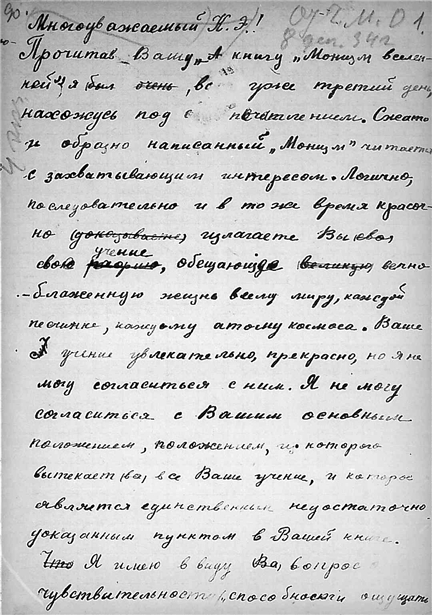 Многоуважаемый К. Э.!
От Ч. М. 01.
8 дек. 34 г
Прочитав Вашу книгу „Монизм вселен-
ной", я был очень, вот уже третий день,
нахожусь под впечатлением. Сжато
и образно написанный „Монизм" читается
с захватывающим интересом. Логично,
последовательно и в то же время красоч-
но (доказываете) излагаете Вы
учение
свою, обещающее (великую) вечно
-блаженную жизнь всему миру, каждой
песчинке, каждому атому космоса. Ваше
учение увлекательно, прекрасно, но я не
могу согласиться с ним. Я не могу
согласиться с Вашим основным
положением, положением, из которого
вытекает (ва) все Ваше учение, и которое
является единственным недостаточно
доказанным пунктом в Вашей книге.
Что Я имею в виду Ва, вопрос о
чувствительности, способности ощущать